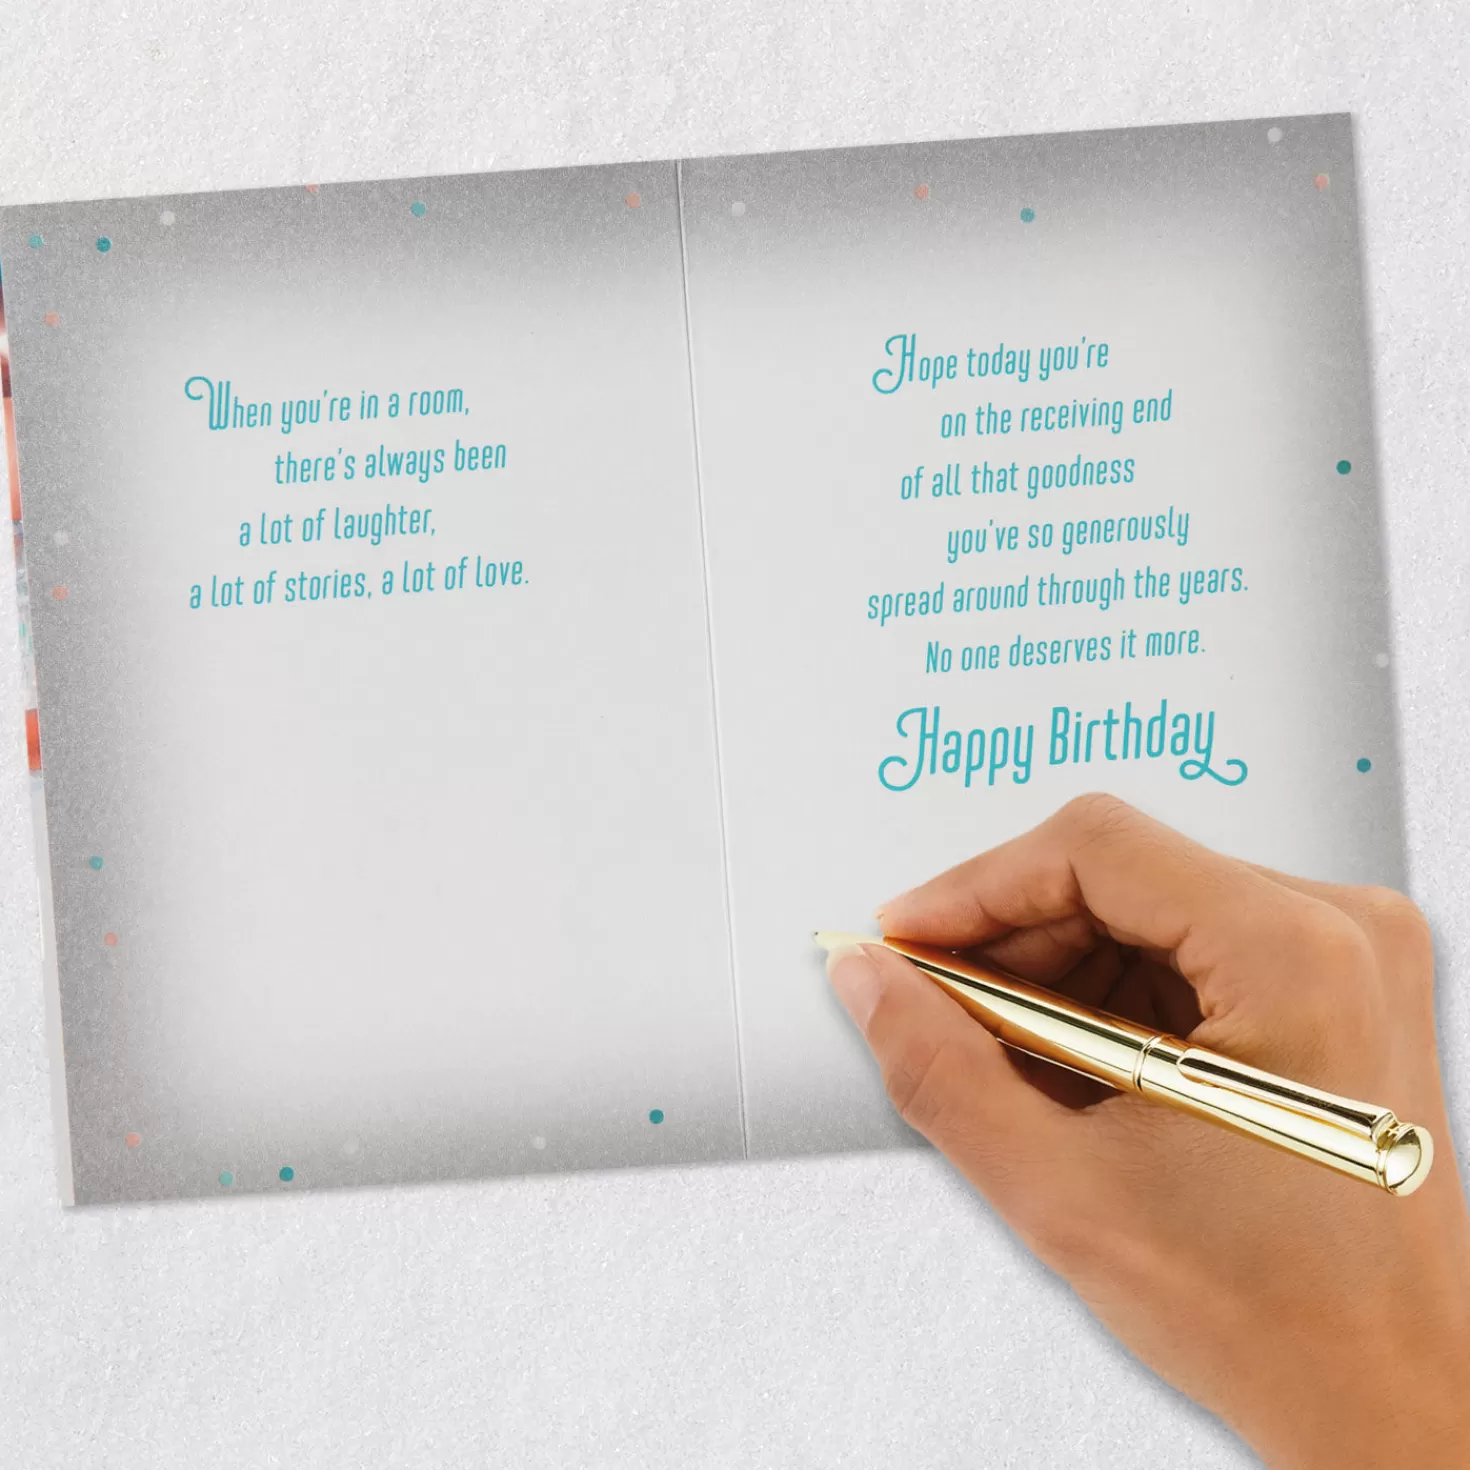 When you're in a room,
there's always been
a lot of laughter,
a lot of stories, a lot of love.
Hope today you're
on the receiving end
of all that goodness
you've so generously
spread around through the years.
No one deserves it more.
Happy Birthday